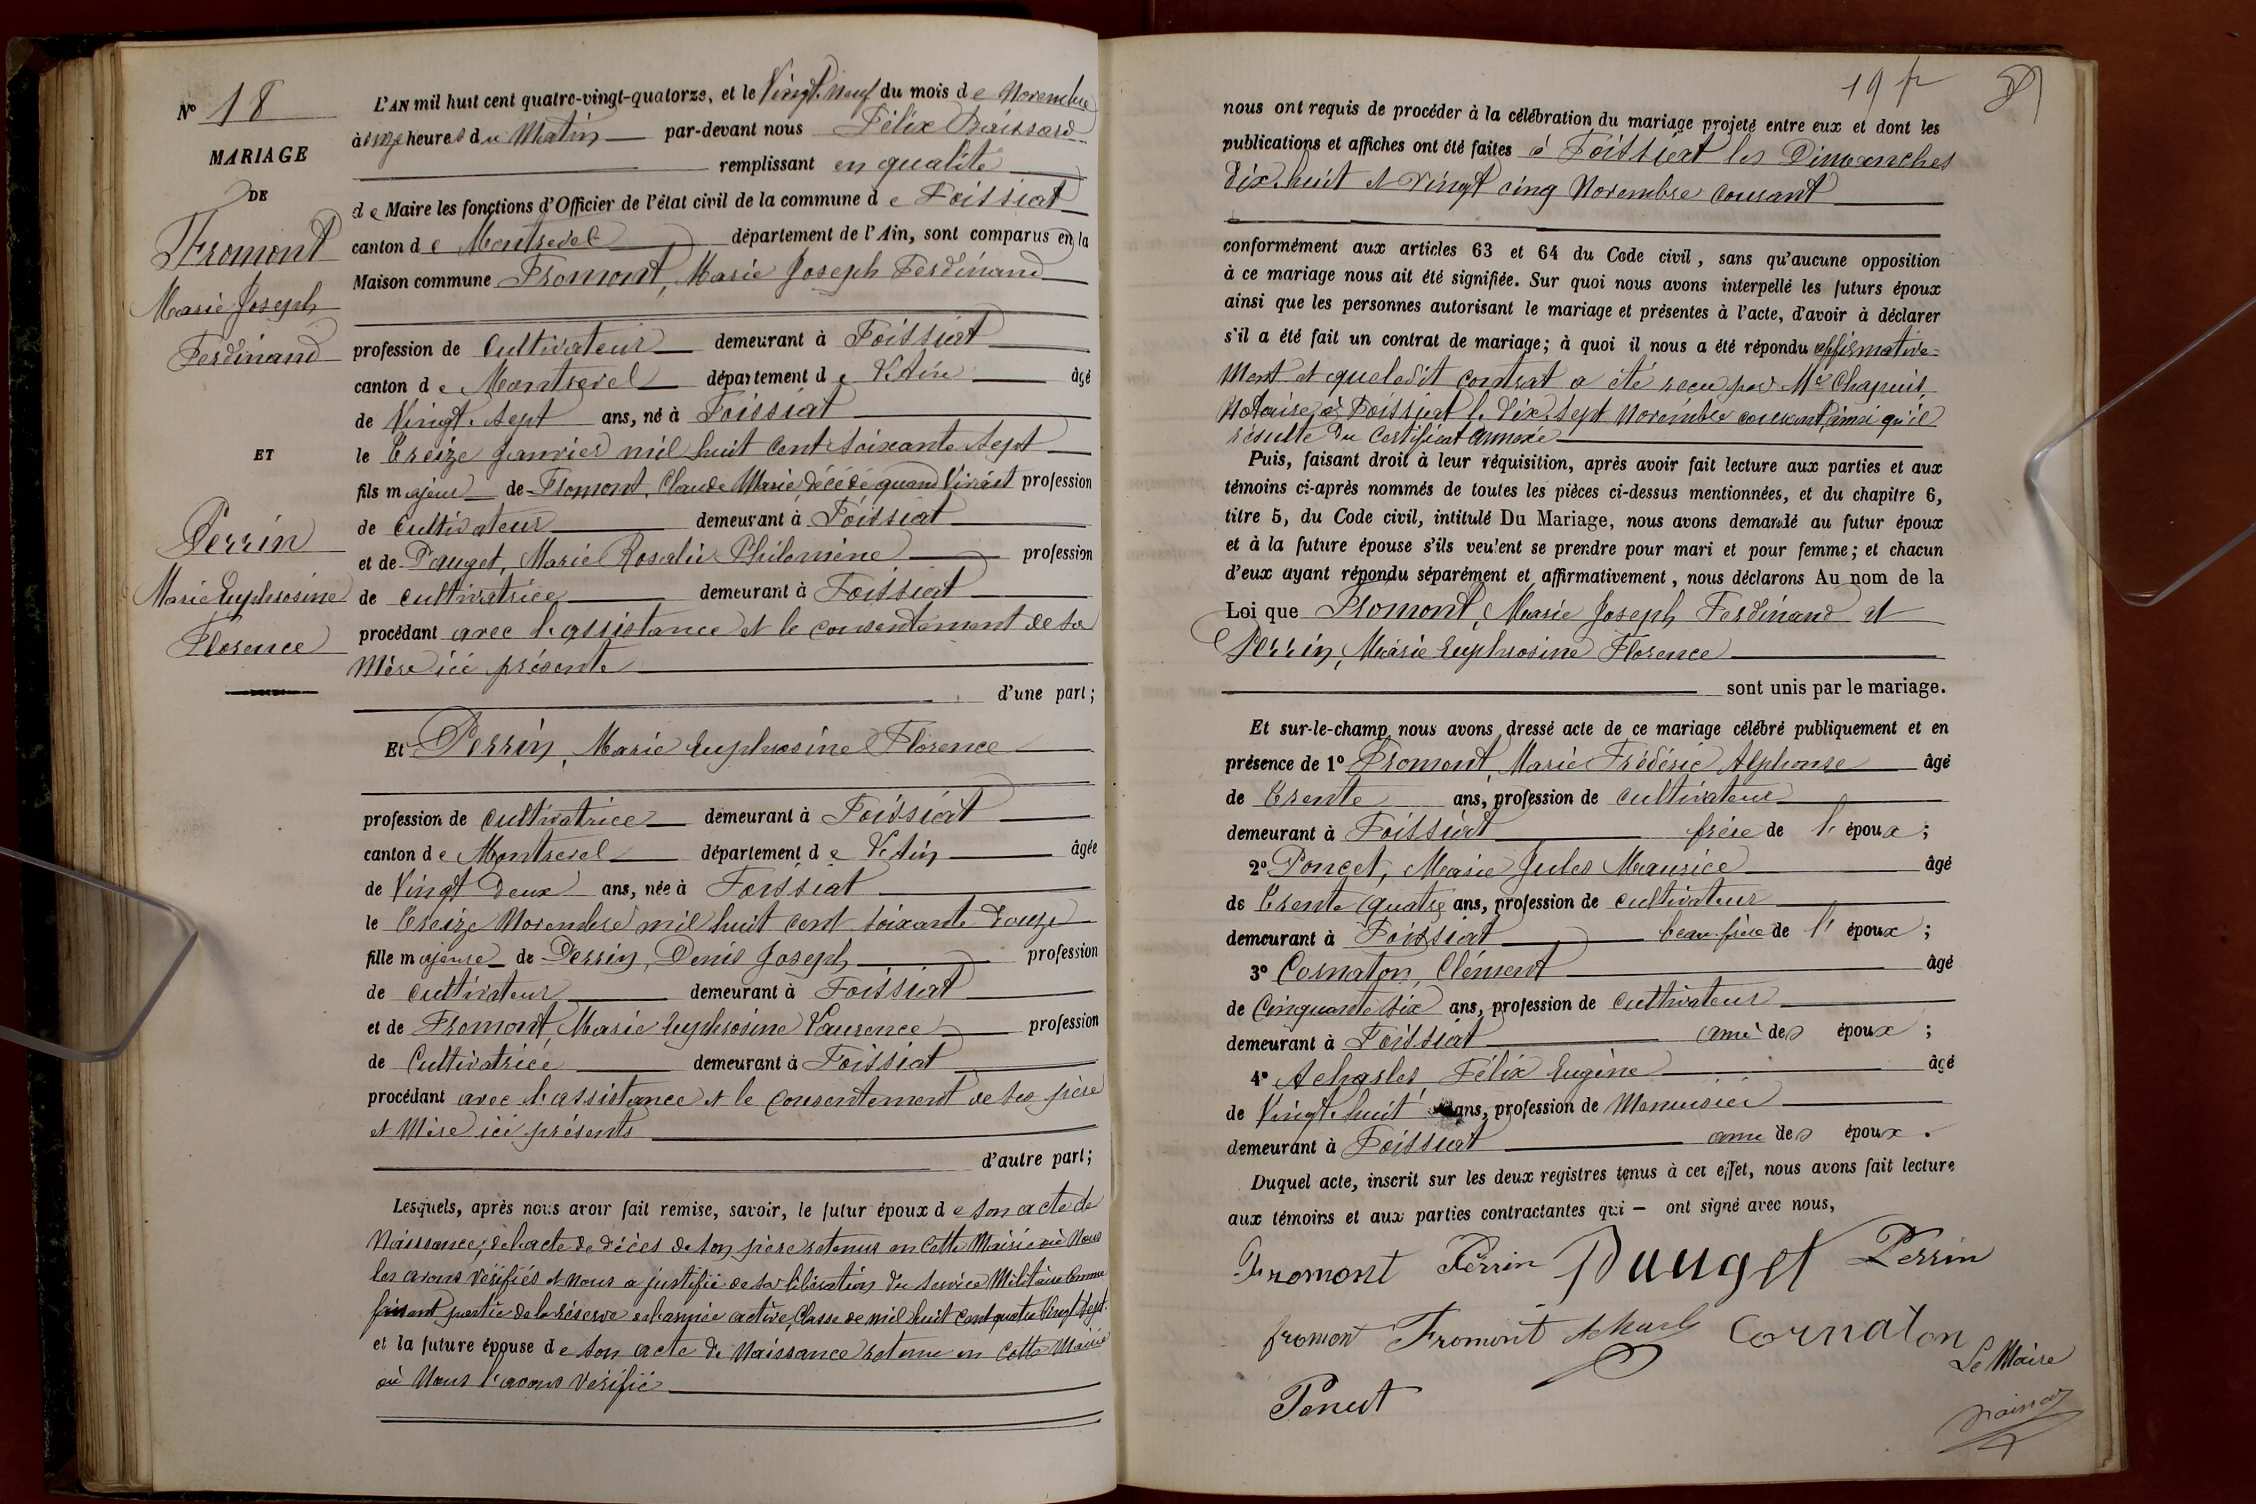 N° 18
MARIAGE
DE
Fromont
Marie Joseph
Ferdinand
ET
Perrin
Marie Euphrosine
Florence
L'AN mil huit cent quatre-vingt-quatorze, et le Vingt-Neuf du mois de Novembre
à onze heures du Matin par-devant nous Félix
remplissant en qualité
de Maire les fonctions d'Officier de l'état civil de la commune de Foissiat
canton de Montrevel département de l'Ain, sont comparus en la
Maison commune Fromont, Marie Joseph Ferdinand
profession de Cultivateur demeurant à Foissiat
canton de Montrevel département de L'Ain âgé
de Vingt-sept ans, né à Foissiat
le Treize Janvier mil huit cent soixante sept
fils majeur de Fromont, Claude Marie décédé quand Vivait profession
de Cultivateur demeurant à Foissiat
et de Pauget, Marie Rosalie Philomène profession
de cultivatrice demeurant à Foissiat
procédant avec l'assistance et le consentement de sa
Mère ici présente
d'une part;
Et Perrin, Marie Euphrosine Florence
profession de Cultivatrice demeurant à Foissiat
canton de Montrevel département de L'Ain âgée
de Vingt Deux ans, née à Foissiat
le Treize Novembre mil huit cent soixante douze
fille majeure de Perrin, Denis Joseph profession
de cultivateur demeurant à Foissiat
et de Fromont, Marie Euphrosine Laurence profession
de Cultivatrice demeurant à Foissiat
procédant avec l'assistance et le Consentement de ses père
et Mère ici présents
d'autre part;
Lesquels, après nous avoir fait remise, savoir, le futur époux de son acte de
Naissance, de l'acte de décès de son père retenus en cette Mairie où Nous
les avons vérifiés et Nous a justifié de sa libération du service Militaire Comme
faisant partie de la réserve de l'armée active, Classe de mil huit cent quatre Vingt Sept.
et la future épouse de son acte de Naissance retenu en Cette Mairie
où Nous l'avons Vérifié
19
nous ont requis de procéder à la célébration du mariage projeté entre eux et dont les
publications et affiches ont été faites à Foissiat les Dimanches
dix-huit et vingt cinq Novembre Courant
conformément aux articles 63 et 64 du Code civil, sans qu'aucune opposition
à ce mariage nous ait été signifiée. Sur quoi nous avons interpellé les futurs époux
ainsi que les personnes autorisant le mariage et présentes à l'acte, d'avoir à déclarer
s'il a été fait un contrat de mariage; à quoi il nous a été répondu affirmative-
Ment et que ledit Contrat a été reçu par Me Chapuis
Notaire à Foissiat le Dix-sept Novembre courant, ainsi qu'il
résulte du Certificat annexé
Puis, faisant droit à leur réquisition, après avoir fait lecture aux parties et aux
témoins ci-après nommés de toutes les pièces ci-dessus mentionnées, et du chapitre 6,
titre 5, du Code civil, intitulé Du Mariage, nous avons demandé au futur époux
et à la future épouse s'ils veulent se prendre pour mari et pour femme; et chacun
d'eux ayant répondu séparément et affirmativement, nous déclarons Au nom de la
Loi que Fromont, Marie Joseph Ferdinand et
Perrin, Marie Euphrosine Florence
sont unis par le mariage.
Et sur-le-champ nous avons dressé acte de ce mariage célébré publiquement et en
présence de 1° Fromont, Marie Frédéric Alphonse âgé
de Trente ans, profession de cultivateur
demeurant à Foissiat frère de l'époux;
2° Poncet, Marie Jules Maurice âgé
de Trente quatre ans, profession de cultivateur
demeurant à Foissiat beau-frère de l'époux;
3° Cornaton, Clément âgé
de Cinquante six ans, profession de cultivateur
demeurant à Foissiat ami des époux;
4° Acharles, Félix Eugène âgé
de Vingt-huit ans, profession de Menuisier
demeurant à Foissiat ami des époux.
Duquel acte, inscrit sur les deux registres tenus à cet effet, nous avons fait lecture
aux témoins et aux parties contractantes qui — ont signé avec nous,
Fromont Perrin Pauget Perrin
fromont Fromont Acharles Cornaton
Le Maire
Poncet